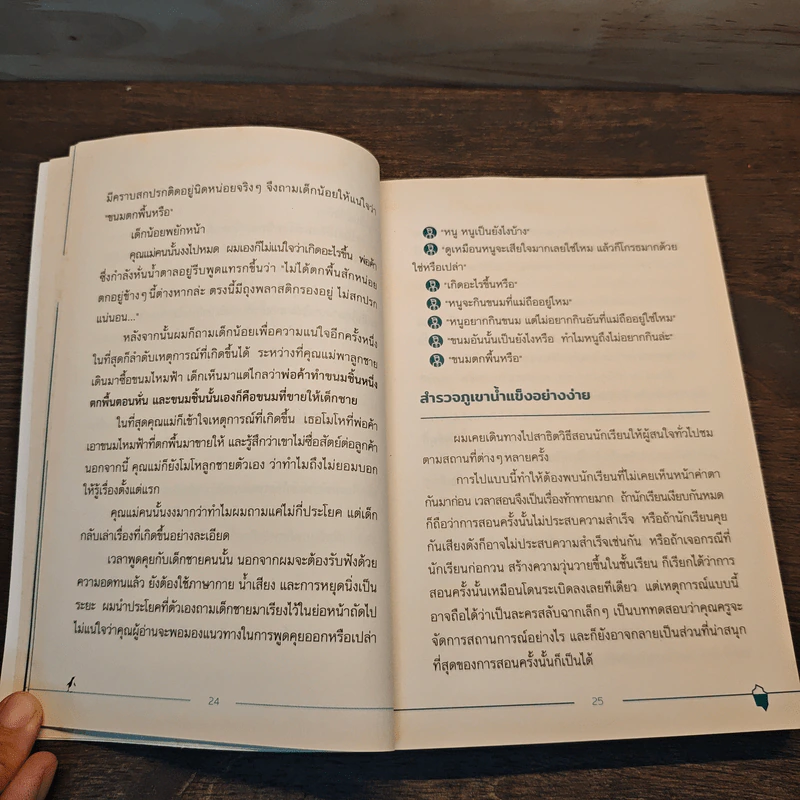 มีคราบสกปรกติดอยู่นิดหน่อยจริงๆ จึงถามเด็กน้อยให้แน่ใจว่า
"ขนมตกพื้นหรือ"
เด็กน้อยพยักหน้า
คุณแม่คนนั้นงงไปหมด ผมเองก็ไม่แน่ใจว่าเกิดอะไรขึ้น พ่อค้า
ซึ่งกำลังหั่นน้ำตาลอยู่รีบพูดแทรกขึ้นว่า "ไม่ได้ตกพื้นสักหน่อย
ตกอยู่ข้างๆ นี้ต่างหากล่ะ ตรงนี้มีถุงพลาสติกรองอยู่ ไม่สกปรก
แน่นอน..."
หลังจากนั้นผมก็ถามเด็กน้อยเพื่อความแน่ใจอีกครั้งหนึ่ง
ในที่สุดก็ลำดับเหตุการณ์ที่เกิดขึ้นได้ ระหว่างที่คุณแม่พาลูกชาย
เดินมาซื้อขนมไหมฟ้า เด็กเห็นมาแต่ไกลว่าพ่อค้าทำขนมชิ้นหนึ่ง
ตกพื้นตอนหั่น และขนมชิ้นนั้นเองก็คือขนมที่ขายให้เด็กชาย
ในที่สุดคุณแม่ก็เข้าใจเหตุการณ์ที่เกิดขึ้น เธอโมโหที่พ่อค้า
เอาขนมไหมฟ้าที่ตกพื้นมาขายให้ และรู้สึกว่าเขาไม่ซื่อสัตย์ต่อลูกค้า
นอกจากนี้ คุณแม่ก็ยังโมโหลูกชายตัวเอง ว่าทำไมถึงไม่ยอมบอก
ให้รู้เรื่องตั้งแต่แรก
คุณแม่คนนั้นงงมากว่าทำไมผมถามแค่ไม่กี่ประโยค แต่เด็ก
กลับเล่าเรื่องที่เกิดขึ้นอย่างละเอียด
เวลาพูดคุยกับเด็กชายคนนั้น นอกจากผมจะต้องรับฟังด้วย
ความอดทนแล้ว ยังต้องใช้ภาษากาย น้ำเสียง และการหยุดนิ่งเป็น
ระยะ ผมนำประโยคที่ตัวเองถามเด็กชายมาเรียงไว้ในย่อหน้าถัดไป
ไม่แน่ใจว่าคุณผู้อ่านจะพอมองแนวทางในการพูดคุยออกหรือเปล่า
24
"หนู หนูเป็นยังไงบ้าง"
"ดูเหมือนหนูจะเสียใจมากเลยใช่ไหม แล้วก็โกรธมากด้วย
ใช่หรือเปล่า"
"เกิดอะไรขึ้นหรือ"
"หนูจะกินขนมที่แม่ถืออยู่ไหม"
"หนูอยากกินขนม แต่ไม่อยากกินอันที่แม่ถืออยู่ใช่ไหม"
"ขนมอันนั้นเป็นยังไงหรือ ทำไมหนูถึงไม่อยากกินล่ะ"
"ขนมตกพื้นหรือ"
สำรวจภูเขาน้ำแข็งอย่างง่าย
ผมเคยเดินทางไปสาธิตวิธีสอนนักเรียนให้ผู้สนใจทั่วไปชม
ตามสถานที่ต่างๆ หลายครั้ง
การไปแบบนี้ทำให้ต้องพบนักเรียนที่ไม่เคยเห็นหน้าค่าตา
กันมาก่อน เวลาสอนจึงเป็นเรื่องท้าทายมาก ถ้านักเรียนเงียบกันหมด
ก็ถือว่าการสอนครั้งนั้นไม่ประสบความสำเร็จ หรือถ้านักเรียนคุย
กันเสียงดังก็อาจไม่ประสบความสำเร็จเช่นกัน หรือถ้าเจอกรณีที่
นักเรียนก่อกวน สร้างความวุ่นวายขึ้นในชั้นเรียน ก็เรียกได้ว่าการ
สอนครั้งนั้นเหมือนโดนระเบิดลงเลยทีเดียว แต่เหตุการณ์แบบนี้
อาจถือได้ว่าเป็นละครสลับฉากเล็กๆ เป็นบททดสอบว่าคุณครูจะ
จัดการสถานการณ์อย่างไร และก็ยังอาจกลายเป็นส่วนที่น่าสนุก
ที่สุดของการสอนครั้งนั้นก็เป็นได้
25